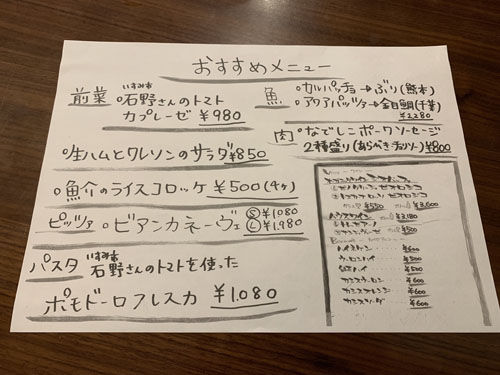 おすすめメニュー
前菜
いすみ市
○石野さんのトマト
カプレーゼ ¥980
○生ハムとクレソンのサラダ ¥850
○魚介のライスコロッケ ¥500(4ヶ)
ピッツァ ○ビアンカネーヴェ Ⓢ¥1080
Ⓛ¥1,980
パスタ
いすみ市
石野さんのトマトを使った
ポモドーロフレスカ ¥1,080
魚
○カルパッチョ→ぶり(熊本)
○アクアパッツァ→金目鯛(千葉)
¥2,280
肉 ○なでしこポークソーセージ
2種盛り(あらびき・チョリソー) ¥800
¥550 ¥3,600
ハウスワイン ¥3,180
¥500
ハイボール ¥600
¥500
¥500
カシスウーロン ¥600
カシスオレンジ ¥600
カシスソーダ ¥600